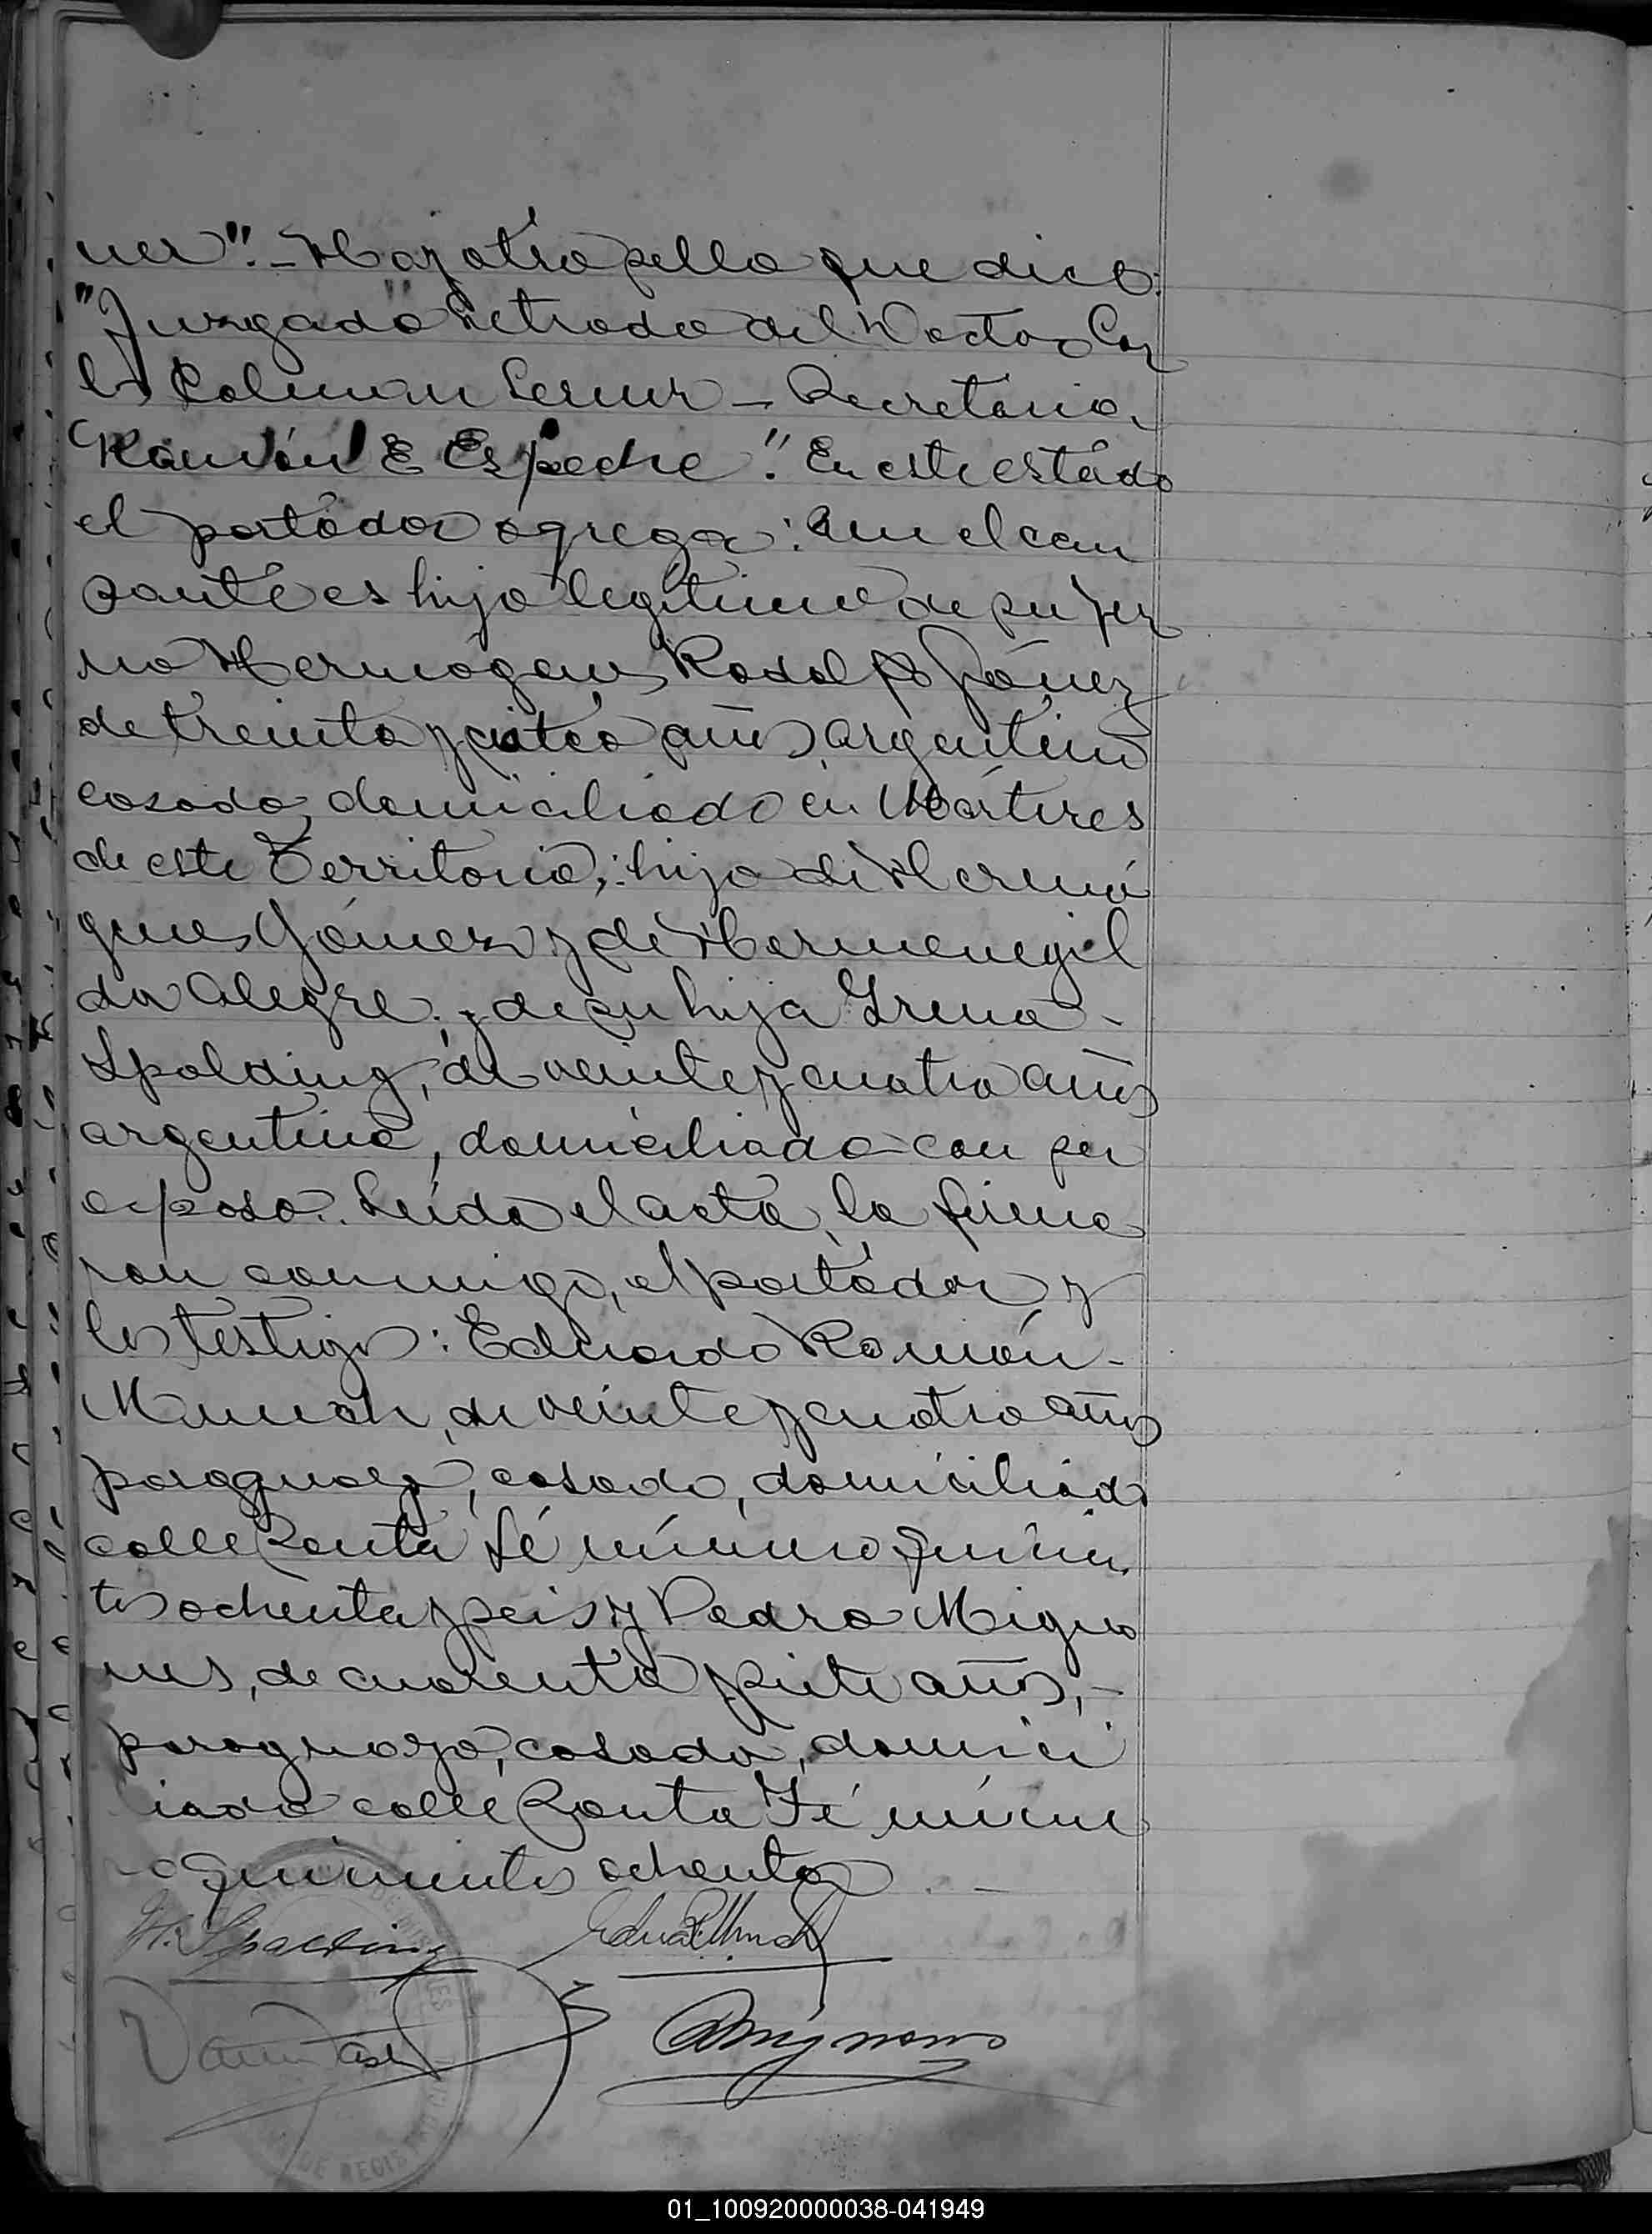 ner".- Hay otro sello que dice:
"Juzgado Letrado del Doctor Car
los Coliman Lerner - Secretario,
Ramón E Espeche". En este estado
el portador agrega: Que el cau
sante es hijo legítimo de su yer
no Hermógenes Rodolfo Gómez
de treinta y cuatro años, argentino
casado, domiciliado en Mártires
de este Territorio; hijo de Hermó
genes Gómez y de Hermenegil
da Alegre; y de su hija Irena -
Spalding, de veinte y cuatro años
argentina, domiciliada con su
esposo. Leída el acta, la firma
ron conmigo, el portador y
los testigos: Eduardo Ramón -
Munch, de veinte y cuatro años
paraguayo, casado, domiciliado
calle Santa Fé número quinien
tos ochenta y seis y Pedro Migno
nes, de cuarenta y siete años, -
paraguayo, casado, domici
liado calle Santa Fé núme
ro quinientos ochenta. -
H. Spalding Eduar R Munch
Mignones
01_100920000038-041949